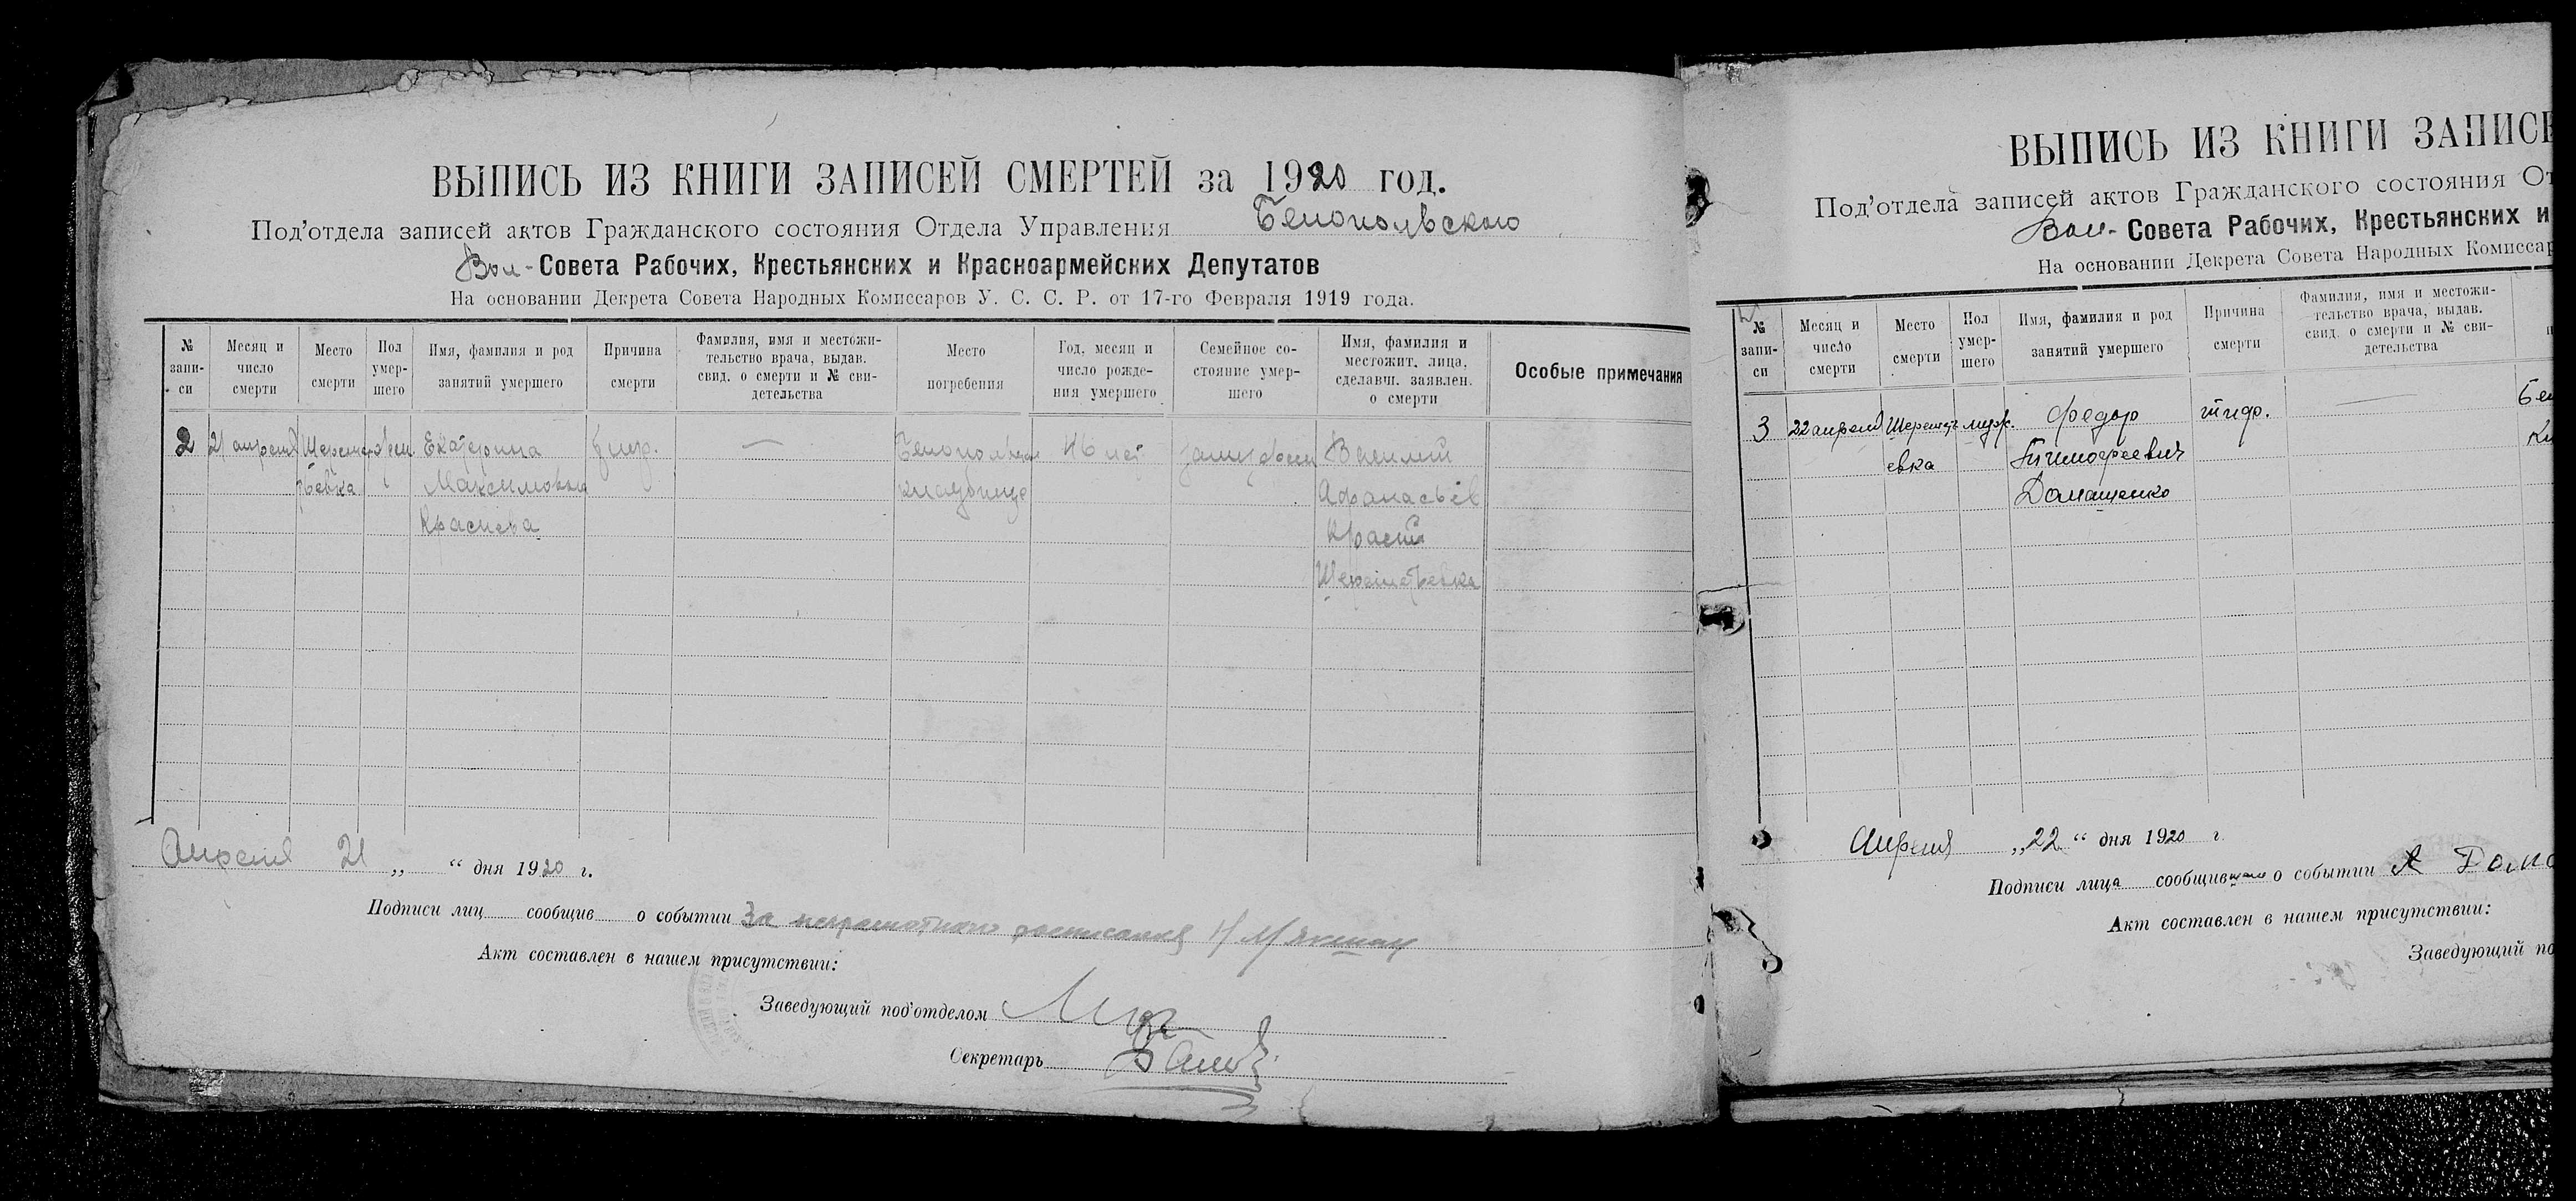 ВЫПИСЬ ИЗ КНИГИ ЗАПИСЕЙ СМЕРТЕЙ за 1920 год.
Под'отдела записей актов Гражданского состояния Отдела Управления Белопольского
Вол-Совета Рабочих, Крестьянских и Красноармейских Депутатов
На основании Декрета Совета Народных Комиссаров У. С. С. Р. от 17-го Февраля 1919 года.
№ запи-си
Месяц и число смерти
Место смерти
Пол умер-шего
Имя, фамилия и род занятий умершего
Причина смерти
Фамилия, имя и местожи-тельство врача, выдав. свид. о смерти и № сви-детельства
Место погребения
Год, месяц и число рожде-ния умершего
Семейное со-стояние умер-шего
Имя, фамилия и местожит. лица, сделавш. заявлен. о смерти
Особые примечания
2 21 апреля Екатерина — 46 лет Василий
Максимовна кладбище Афанасьев
Краснева
Апреля 21 „ “ дня 1920 г.
Подписи лиц сообщив о событии За неграмотного расписался
Акт составлен в нашем присутствии:
Заведующий под'отделом
Секретарь
ВЫПИСЬ ИЗ КНИГИ ЗАПИСЕ
Под'отдела записей актов Гражданского состояния От
Вол-Совета Рабочих, Крестьянских и
На основании Декрета Совета Народных Комиссар
№ запи-си
Месяц и число смерти
Место смерти
Пол умер-шего
Имя, фамилия и род занятий умершего
Причина смерти
Фамилия, имя и местожи-тельство врача, выдав. свид. о смерти и № сви-детельства
3 22 апреля муж. Федор тиф. — Бел
евка Тимофеевич
Домащенко
Апреля „22“ дня 1920 г.
Подписи лица сообщившего о событии А Дома
Акт составлен в нашем присутствии:
Заведующий по